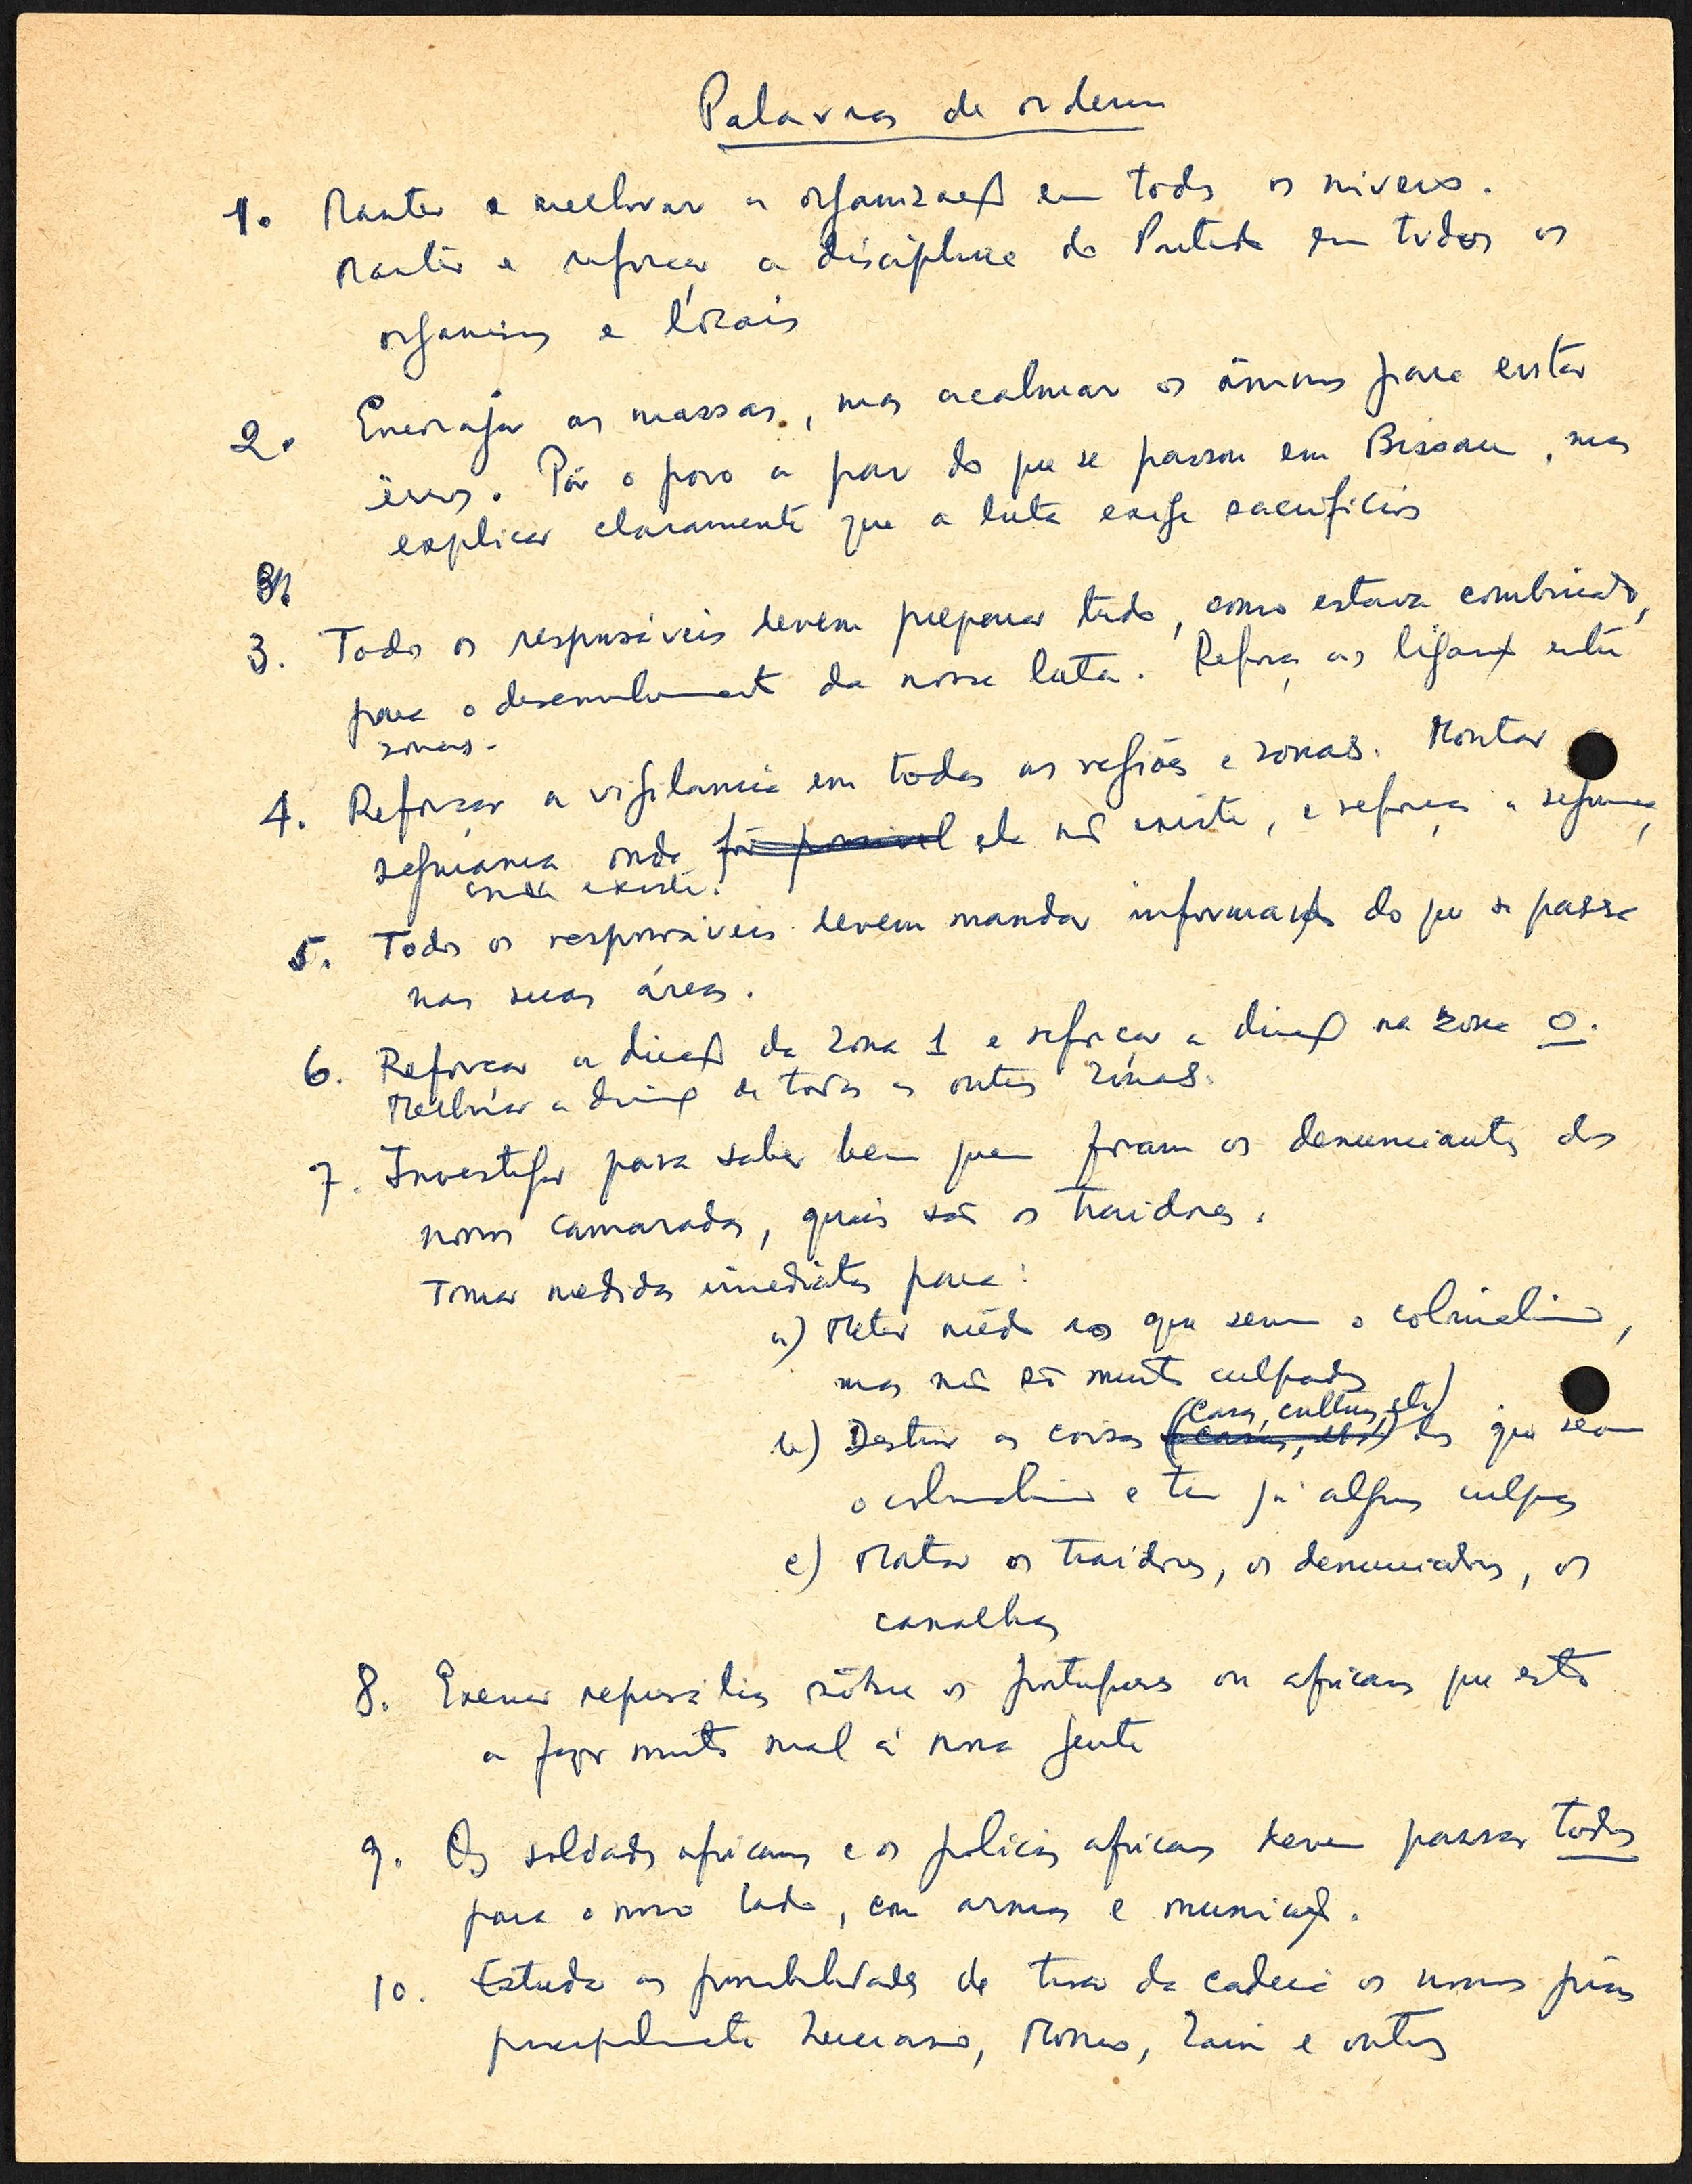 Palavras de ordem
1. Manter e melhorar a organização em todos os níveis.
Manter e reforçar a disciplina do Partido em todos os
organismos e locais
2. Encorajar as massas, mas acalmar os ânimos para evitar
erros. Pôr o povo a par do que se passou em Bissau, mas
explicar claramente que a luta exige sacrifícios
3.
3. Todos os responsáveis devem preparar tudo, como estava combinado,
para o desenvolvimento da nossa luta. Reforçar as ligações entre
zonas.
4. Reforçar a vigilancia em todas as regiões e zonas. Montar a
segurança onde fôr possivel ela não existe, e reforçar a segurança,
onde existe.
5. Todos os responsáveis devem mandar informações do que se passa
nas suas áreas.
6. Reforçar a direcção da Zona 1 e reforçar a direcção na zona 0.
Melhorar a direcção de todas as outras zonas.
7. Investigar para saber bem quem foram os denunciantes dos
nossos camaradas, quais são os traidores.
Tomar medidas imediatas para:
a) Meter mêdo aos que servem o colonialismo,
mas não são muito culpados
(casas, culturas, etc)
b) Destruir as coisas (casas, etc) dos que servem
o colonialismo e tem já algumas culpas
c) Matar os traidores, os denunciadores, os
canalhas
8. Exercer represálias sôbre os portugueses ou africanos que estão
a fazer muito mal à nossa gente
9. Os soldados africanos e os policias africanos devem passar todos
para o nosso lado, com armas e munições.
10. Estudar as possibilidades de tirar da cadeia os nossos presos
principalmente Momo, Zain e outros